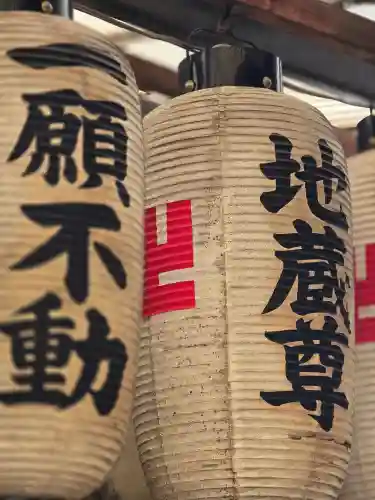 一願不動
地蔵尊